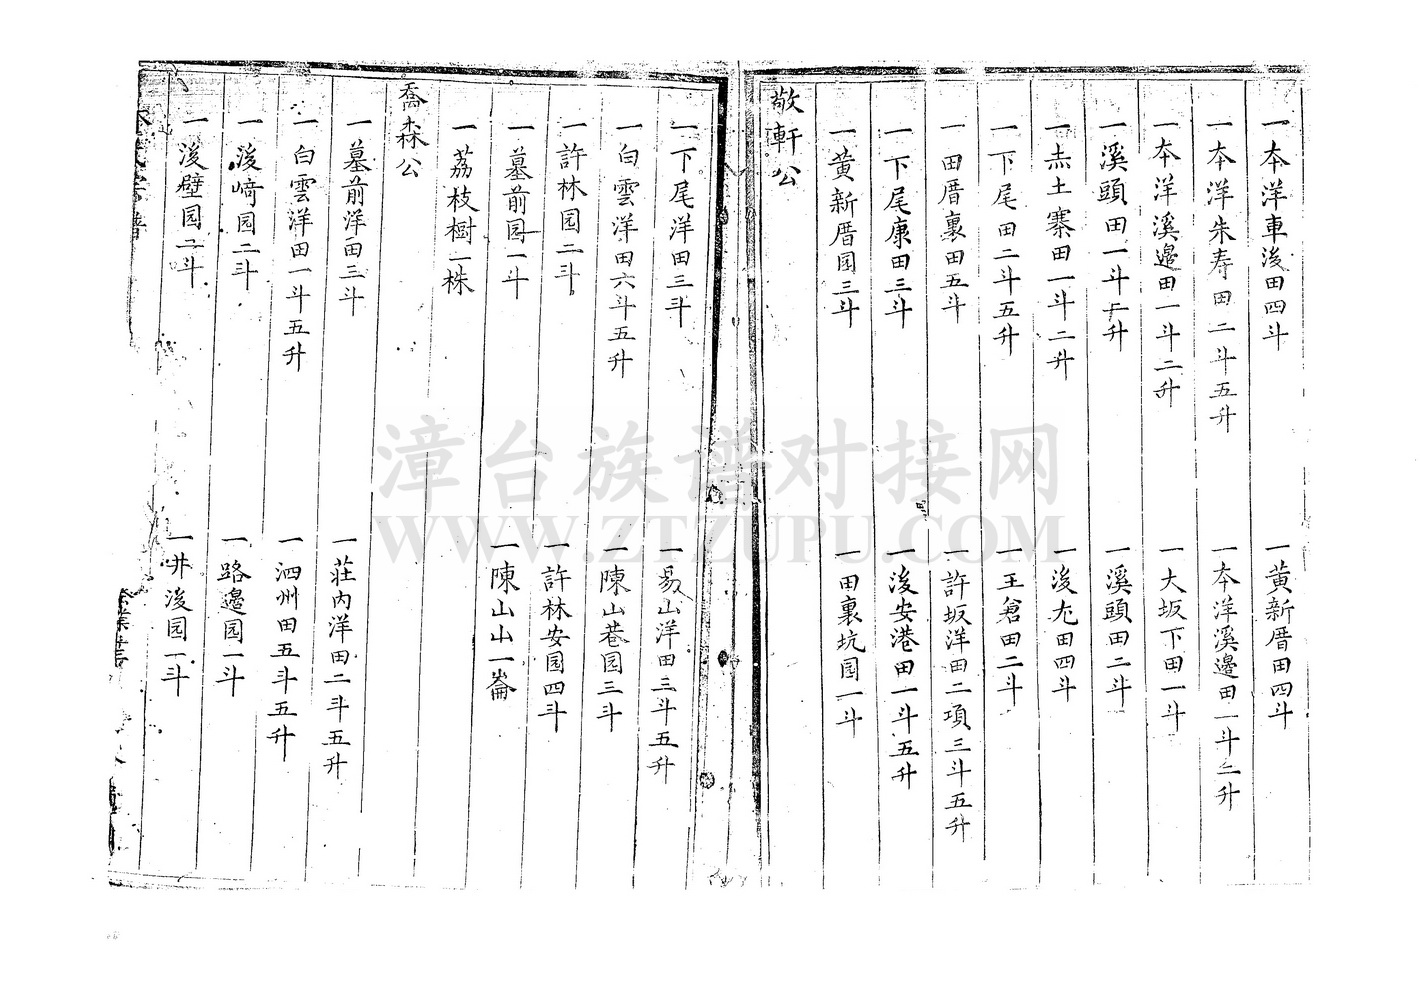 一本洋車後田四斗　一黃新厝田四斗
一本洋朱寿田二斗五升　一本洋溪邉田一斗二升
一本洋溪邉田一斗二升　一大坂下田一斗
一溪頭田一斗二升　一溪頭田二斗
一赤土寨田一斗二升　一後尤田四斗
一下尾田二斗五升　一王倉田二斗
一田厝裏田五斗　一許坂洋田二項三斗五升
一下尾康田三斗　一後安港田一斗五升
一黃新厝园三斗　一田裏坑园一斗
敬軒公
一下尾洋田三斗　一易山洋田三斗五升
一白雲洋田六斗五升　一陳山巷园三斗
一許林园二斗　一許林安园四斗
一墓前园一斗　一陳山山一崙
一荔枝樹一株
喬森公
一墓前洋田三斗　一莊内洋田二斗五升
一白雲洋田一斗五升　一泗州田五斗五升
一後崎园二斗　一路邉园一斗
一後壁园二斗　一井後园一斗
漳台族谱对接网
WWW.ZTZUPU.COM